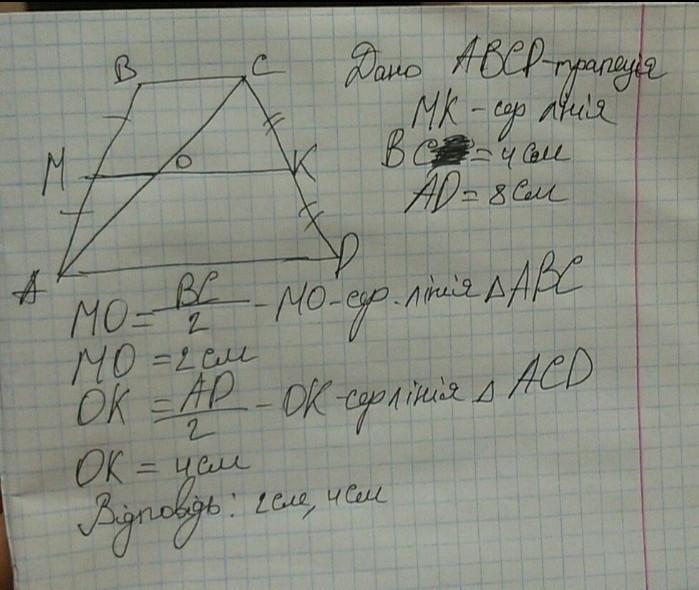 B C
Дано ABCD-трапеція
MK - сер лінія
M O K
BC = 4 см
AD = 8 см
A D
MO = BC/2 - MO-сер. лінія △ABC
MO = 2 см
OK = AD/2 - OK-сер лінія △ ACD
OK = 4 см
Відповідь: 2см, 4см